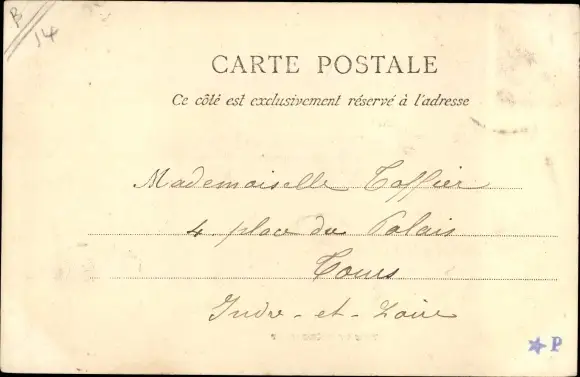 B
14
CARTE POSTALE
Ce côté est exclusivement réservé à l'adresse
Mademoiselle Toffier
4 place du Palais
Tours
Indre-et-Loire
P